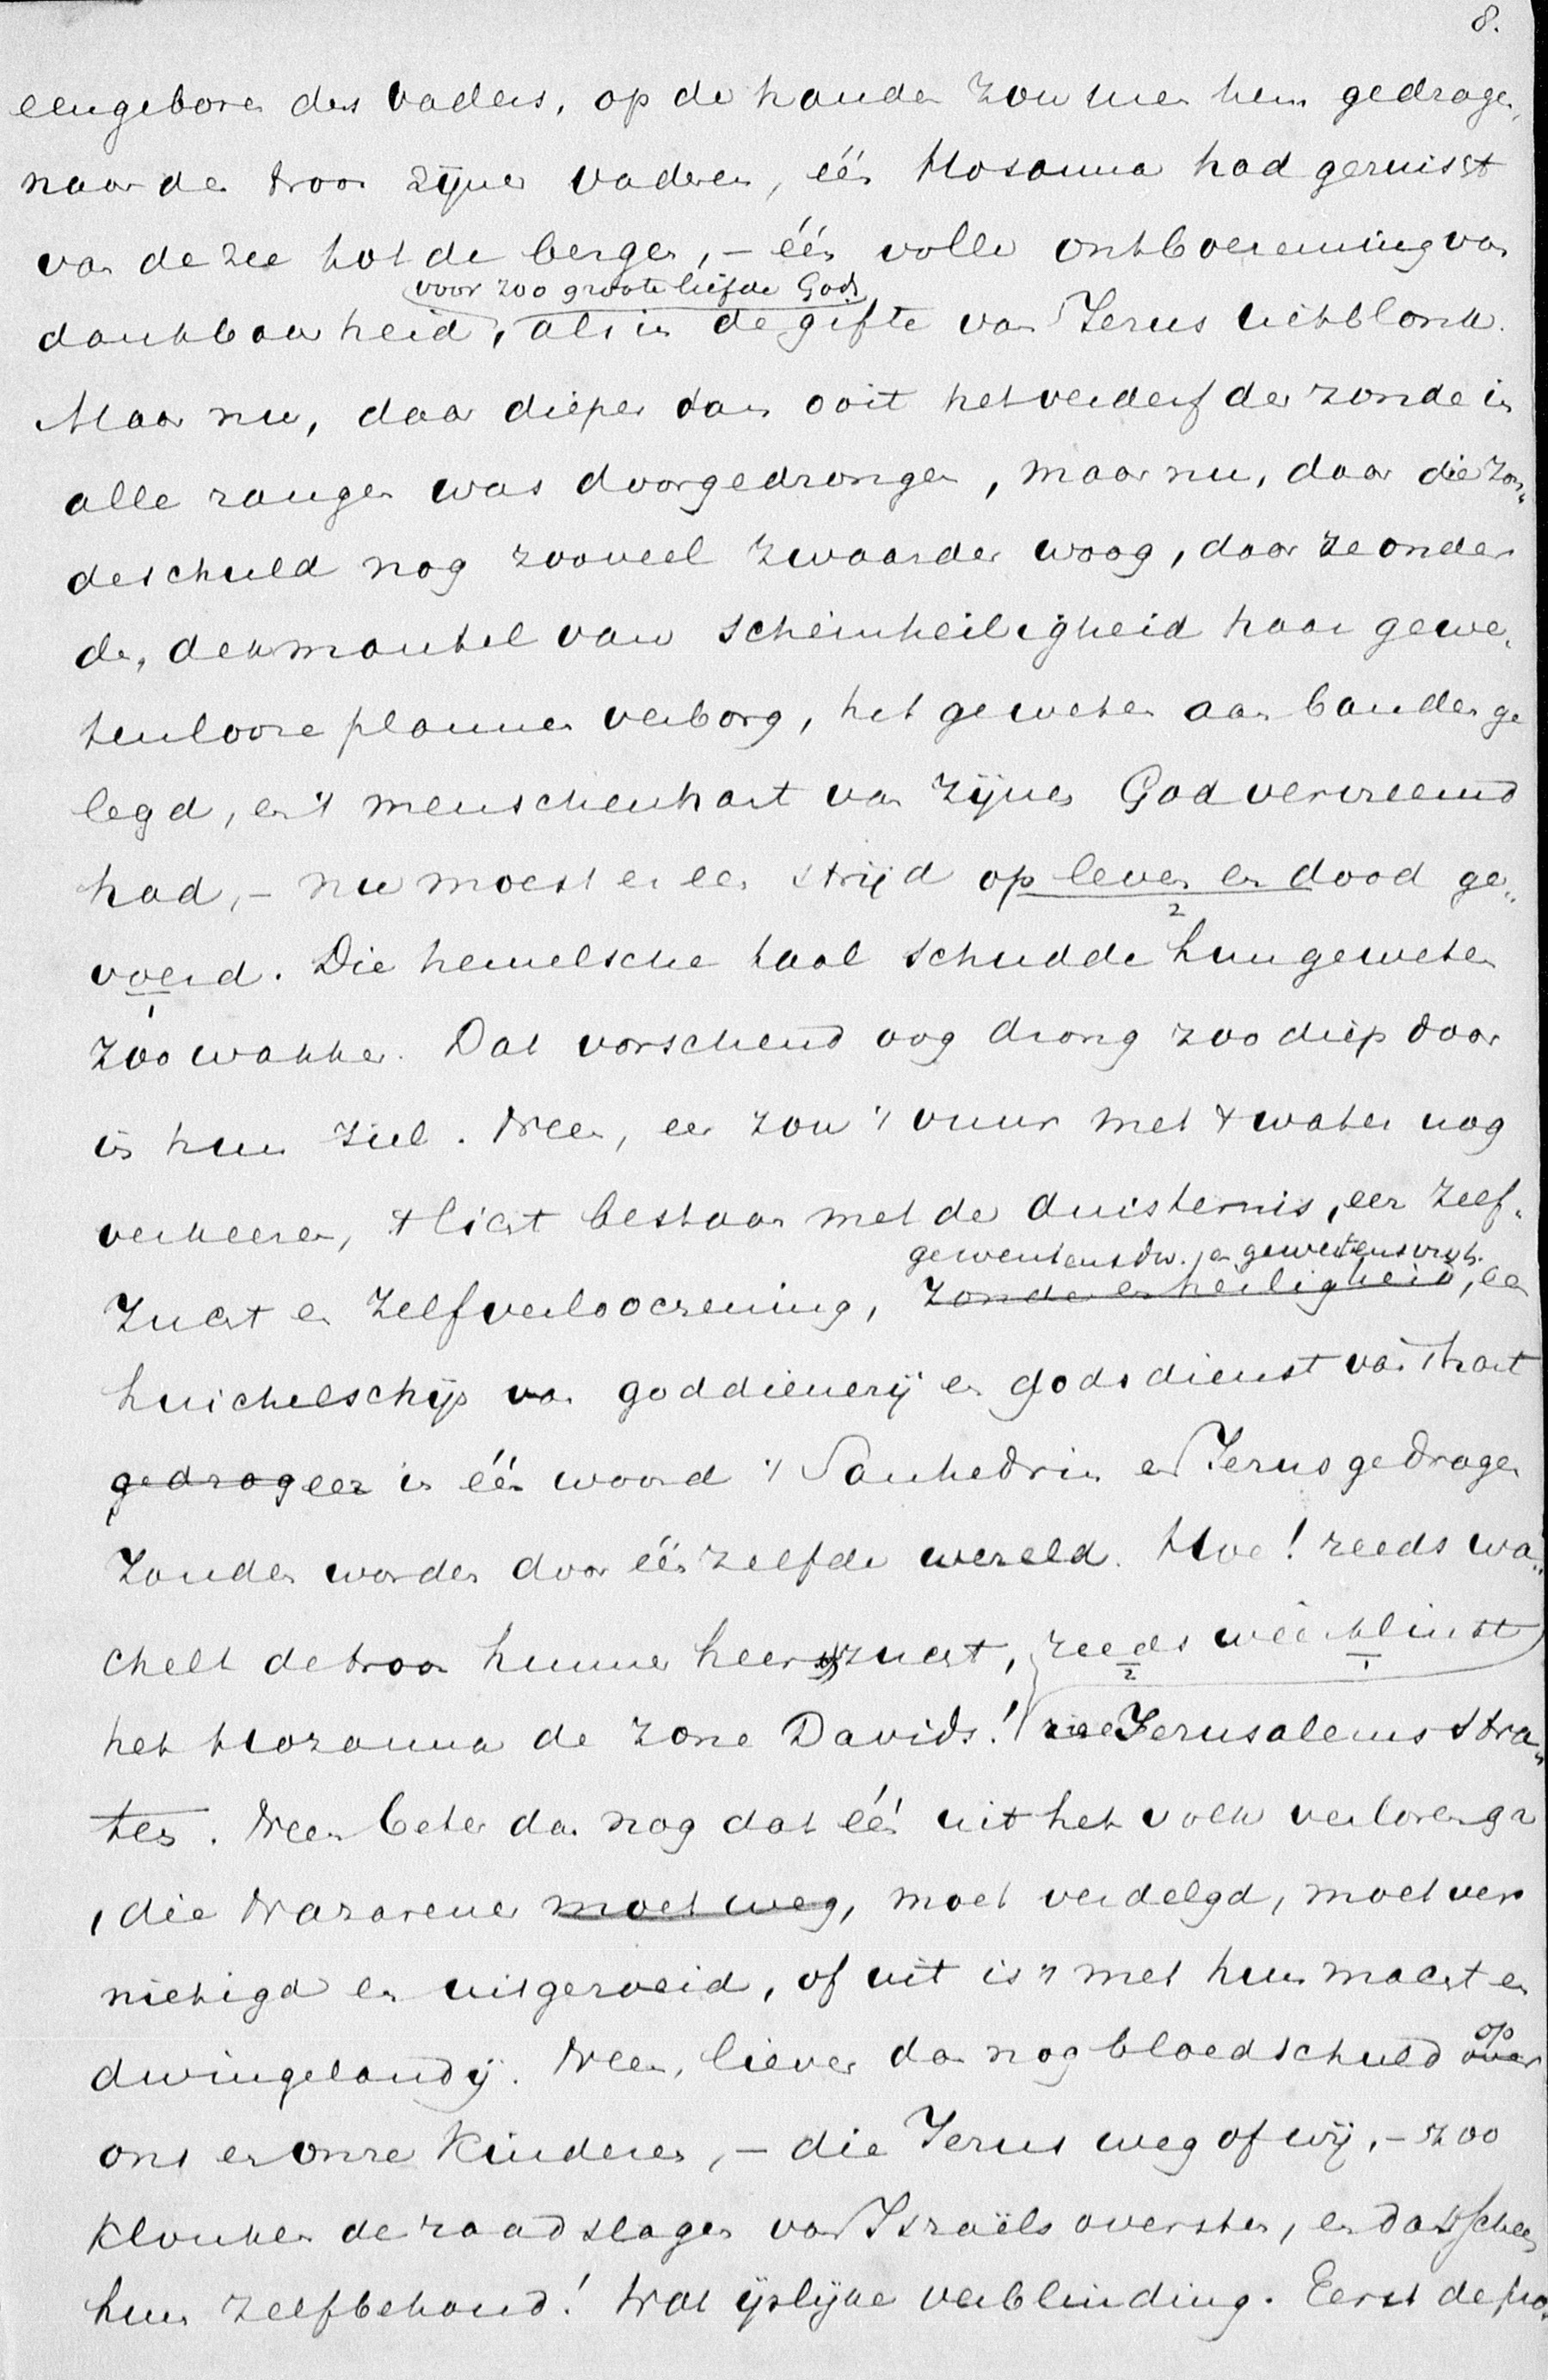 8.
eengeboren des vaders, op de handen zou men hem gedragen,
naar den troon zijner vaderen, één Hosanna had geruischt
van de zee tot de bergen, – één volle ontboezeming van
voor zoo groote liefde Gods
dankbaarheid, als in de gifte van Jezus uitblonk.
Maar nu, daar dieper dan ooit het verderf der zonde in
alle rangen was doorgedrongen, maar nu, daar die zon„
deschuld nog zooveel zwaarder woog, daar ze onder
den dekmantel van schijnheiligheid haar gewe„
tenlooze plannen verborg, het geweten aan banden ge
legd, en 't menschenhart van zijnen God vervreemd
had, – nu moest er een strijd op leven en dood ge„
2
voerd. Die hemelsche taal schudde hun geweten
1
zóó wakker. Dat vorschend oog drong zoo diep door
in hun ziel. Neen, eer zou 't vuur met 't water nog
verkeeren, 't licht bestaan met de duisternis, eer zelf„
gewetensdw. en gewetensvrijh.
zucht en zelfverloochening, zonde en heiligheid, eer
huichelschijn van goddienerij en godsdienst van 't hart
gedragen eer in één woord 't Sanhedrin en Jezus gedragen
zouden worden door éénzelfde wereld. Hoe! reeds wa„
chelt de troon hunner heerszucht, reeds weêrklinkt
2 1
het Hozanna de zone Davids! in Jerusalems stra„
ten. Neen beter dan nog dat één uit het volk verloren ga
, die Nazarener moet weg, moet verdelgd, moet ver
nietigd en uitgeroeid, of uit is 't met hun macht en
op
dwingelandij. Neen, liever dan nog bloedschuld over
ons en onze kinderen, – die Jezus weg of wij, – zoo
klonken de raadslagen van Israëls oversten, en dat scheen
hun zelfbehoud! Wat ijslijke verblinding. Eerst de